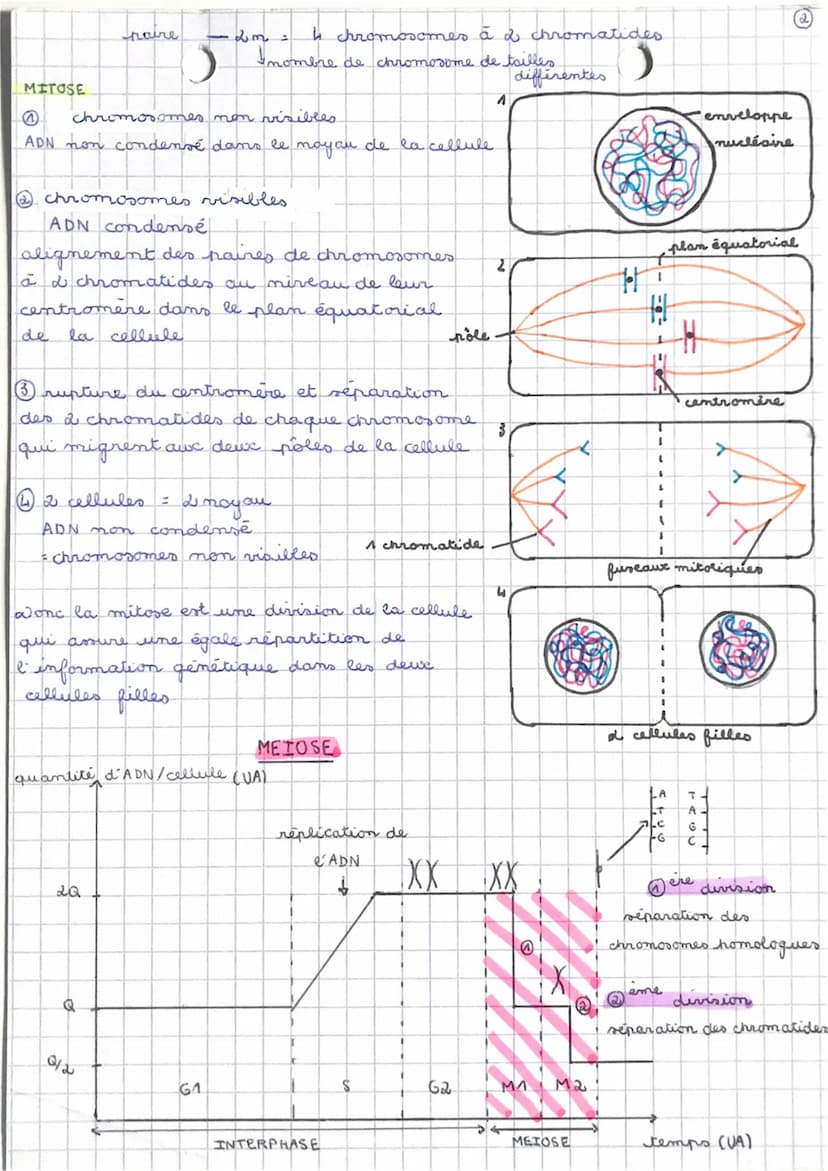 ②
paire — 2n = 4 chromosomes à 2 chromatides
↓nombre de chromosome de tailles
différentes
MITOSE
① chromosomes non visibles
ADN non condensé dans le noyau de la cellule
1
enveloppe
nucléaire
② chromosomes visibles
ADN condensé
alignement des paires de chromosomes
à 2 chromatides au niveau de leur
centromère dans le plan équatorial
de la cellule
2
plan équatorial
pôle
centromère
③ rupture du centromère et séparation
des 2 chromatides de chaque chromosome
qui migrent aux deux pôles de la cellule
3
1 chromatide
fuseaux mitotiques
④ 2 cellules = 2 noyau
ADN non condensé
= chromosomes non visibles
4
2 cellules filles
Donc la mitose est une division de la cellule
qui assure une égale répartition de
l'information génétique dans les deux
cellules filles
MEIOSE
quantité d'ADN/cellule (UA)
réplication de
l'ADN
A T
T A
C G
G C
2Q
Q
Q/2
①
②
① ère division
séparation des
chromosomes homologues
② ème division
séparation des chromatides
G1 S G2 M1 M2
INTERPHASE MEIOSE temps (UA)